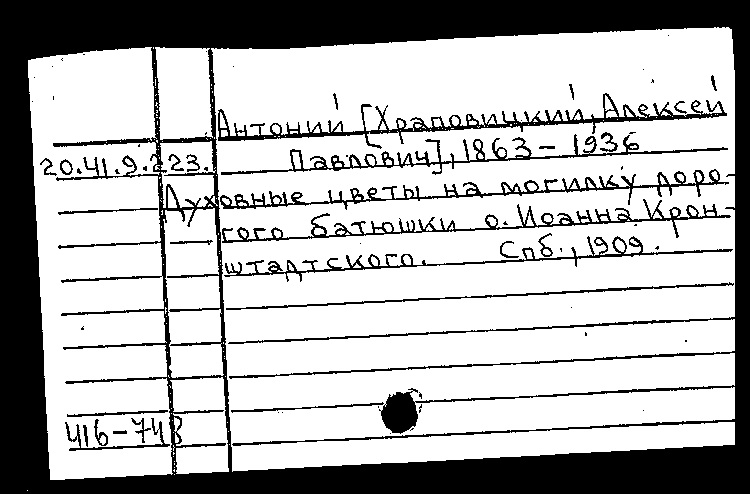 Антоний [Храповицкий, Алексей
20.41.9.223. Павлович], 1863 – 1936
Духовные цветы на могилку доро-
гого батюшки о. Иоанна Крон-
штадтского. Спб., 1909.
416-748